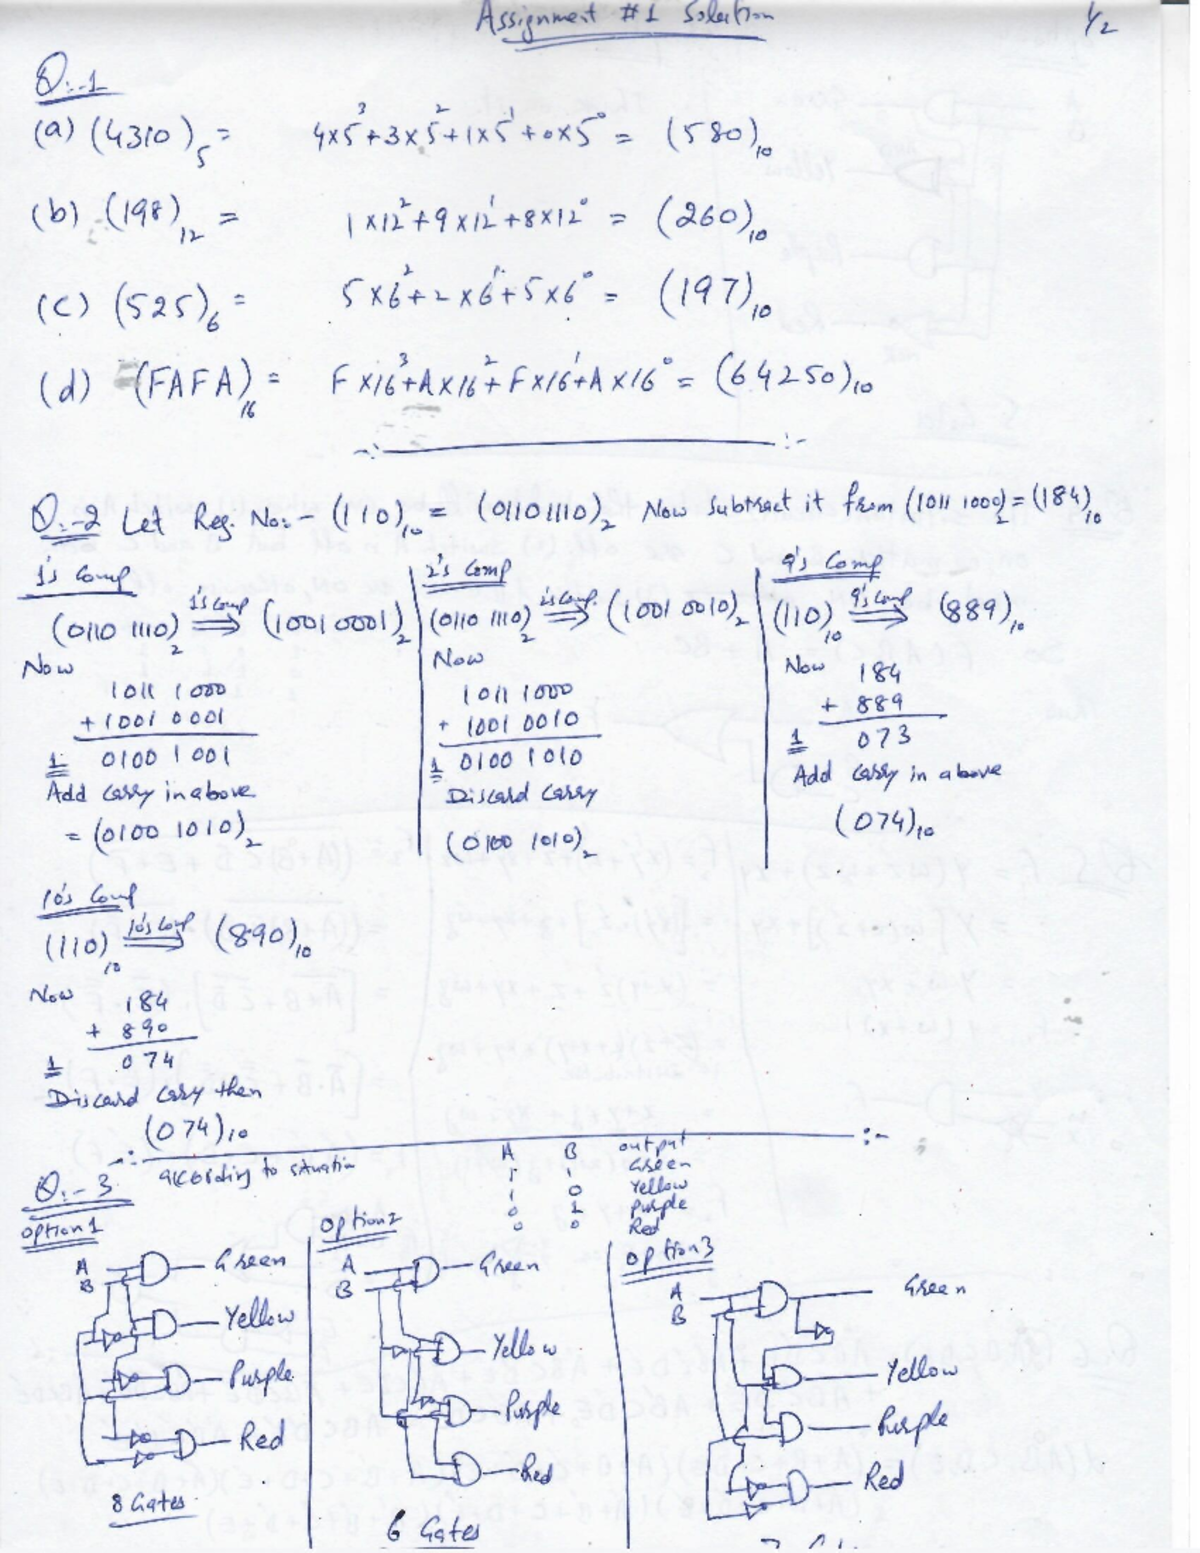 Assignment #1 Solution
1/2
Q:-1
(a) (4310)₅ = 4x5³+3x5²+1x5¹+0x5⁰ = (580)₁₀
(b) (198)₁₂ = 1x12²+9x12¹+8x12⁰ = (260)₁₀
(c) (525)₆ = 5x6²+2x6¹+5x6⁰ = (197)₁₀
(d) (FAFA)₁₆ = Fx16³+Ax16²+Fx16¹+Ax16⁰ = (64250)₁₀
Q:-2 Let Reg. No:- (110)₁₀ = (01101110)₂ Now subtract it from (1011 1000)₂ = (184)₁₀
1's Comp
(0110 1110)₂ 1's Comp ⇒ (1001 0001)₂
Now
1011 1000
+ 1001 0001
1 0100 1001
Add carry in above
= (0100 1010)₂
2's Comp
(0110 1110)₂ 2's Comp. ⇒ (1001 0010)₂
Now
1011 1000
+ 1001 0010
1 0100 1010
Discard carry
(0100 1010)₂
9's Comp
(110)₁₀ 9's Comp ⇒ (889)₁₀
Now 184
+ 889
1 073
Add carry in above
(074)₁₀
10's Comp
(110)₁₀ 10's Comp ⇒ (890)₁₀
Now 184
+ 890
1 074
Discard carry then
(074)₁₀
Q:-3 according to situation
A B output
1 1 Green
1 0 Yellow
0 1 Purple
0 0 Red
option 1
A
B
Green
Yellow
Purple
Red
8 Gates
option 2
A
B
Green
Yellow
Purple
Red
6 Gates
option 3
A
B
Green
Yellow
Purple
Red